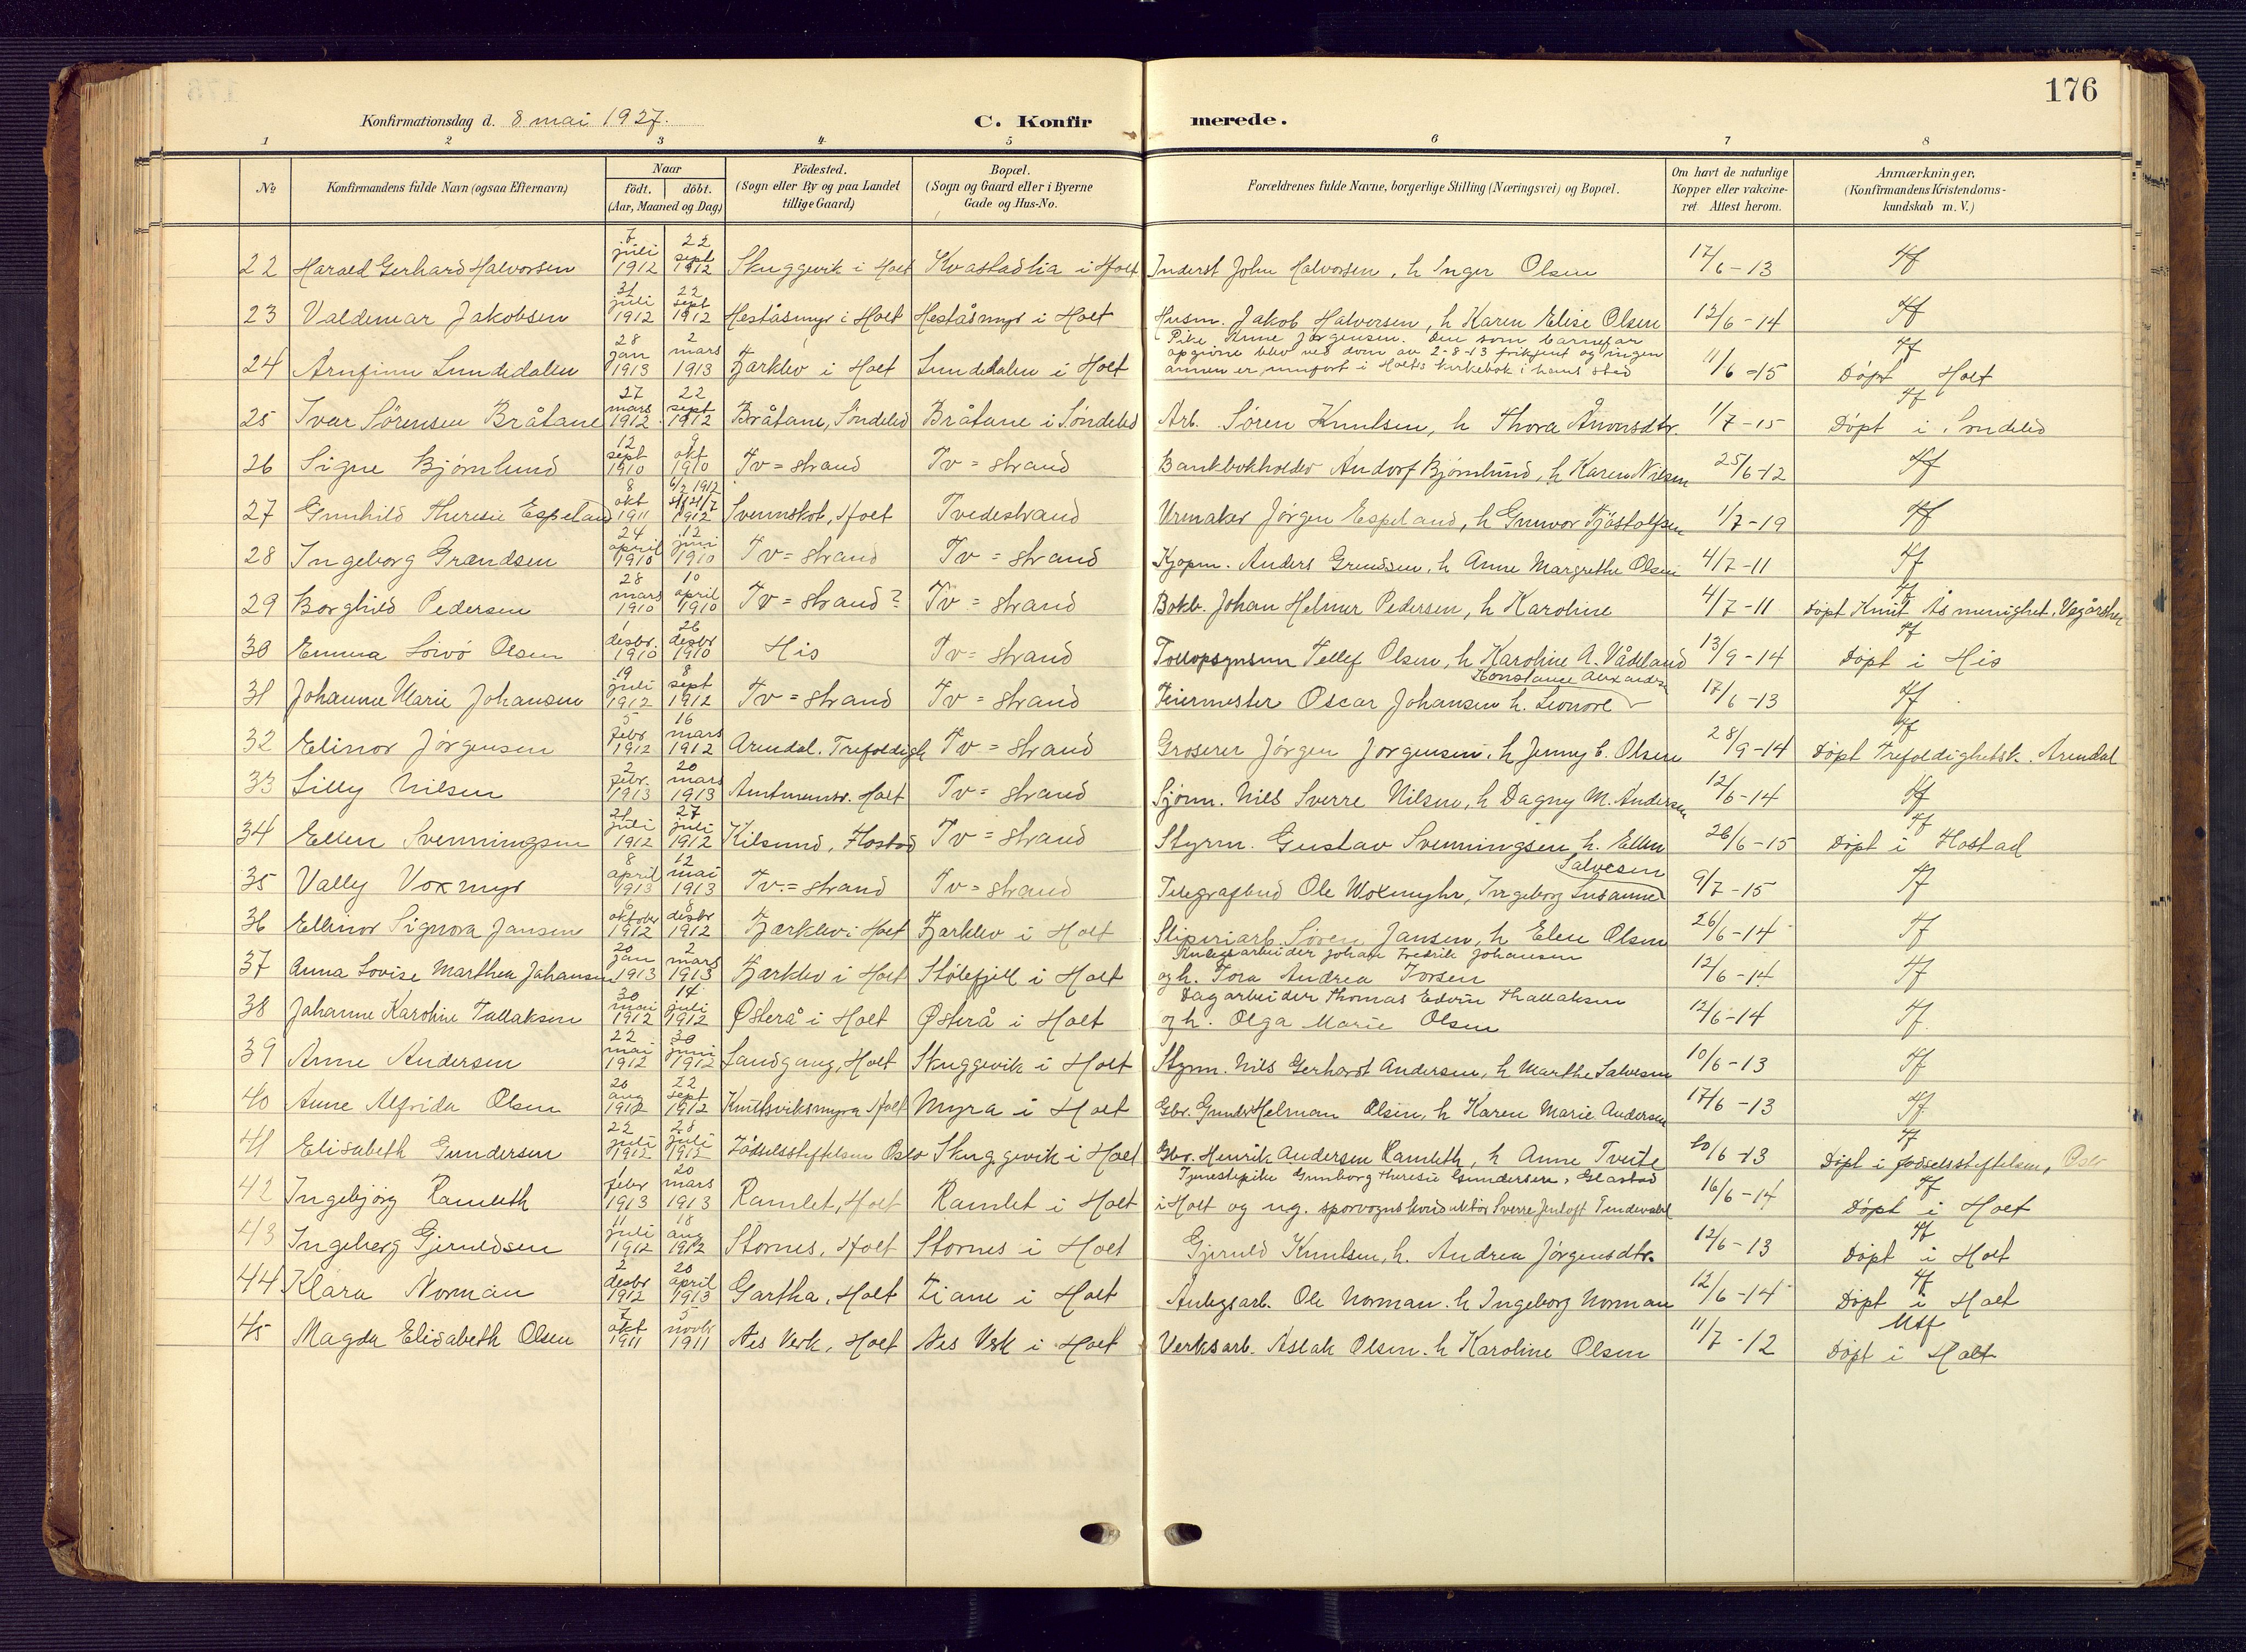 176
Konfirmationsdag d. 8 mai 1927.
C. Konfirmerede.
1 2 3 4 5 6 7 8
No.
Konfirmandens fulde Navn (ogsaa Efternavn)
Naar
födt. döbt.
(Aar, Maaned og Dag)
Födested.
(Sogn eller By og paa Landet
tillige Gaard)
Bopæl.
(Sogn og Gaard eller i Byerne
Gade og Hus-No.
Forældrenes fulde Navne, borgerlige Stilling (Næringsvei) og Bopæl.
Om havt de naturlige
Kopper eller vakcine-
ret. Attest herom.
Anmærkninger,
(Konfirmandens Kristendoms-
kundskab m. V.)
22 Harald Gerhard Halvorsen juli 1912 22 sept 1912 Skuggevik i Holt Kvastadlia i Holt Inderst John Halvorsen, h Inger Olsen 17/6-13 Tf
23 Valdemar Jakobsen 31 juli 1912 22 sept 1912 Heståsmyr i Holt Heståsmyr i Holt Husm. Jakob Halvorsen, h Karen Elise Olsen 12/6-14 Tf
24 Arnfinn Lundedalen 28 jan 1913 2 mars 1913 Fjærklev i Holt Lundedalen i Holt Pike Anne Jørgensen. Den som barnefar
opgivne blev ved dom av 2-8-13 frikjent og ingen
annen er innført i Holts kirkebok i hans sted 11/6-15 Tf Døpt Holt
25 Ivar Sørensen Bråtane 27 mars 1912 22 sept 1912 Bråtane, Søndeled Bråtane i Søndeled Arb. Søren Knutsen, h Thora Ånonsdtr. 1/7-15 Tf Døpt i Søndeled
26 Signe Bjørnlund 12 sept 1910 9 okt 1910 Tv=strand Tv=strand Bankbokholder Andorf Bjørnlund, h Karen Nilsen 25/6-12 Tf
27 Gunhild Theresie Espeland 8 okt 1911 6/2 1912 1912 Holt Tvedestrand Urmaker Jørgen Espeland, h Gunvor Tjøstolfsen 1/7-19 Tf
28 Ingeborg Grændsen 24 april 1910 12 juni 1910 Tv=strand Tv=strand Kjøpm. Anders Grendsen, h Anne Margrethe Olsen 4/7-11 Tf
29 Borghild Pedersen 28 mars 1910 10 april 1910 Tv=strand? Tv=strand Bokb. Johan Helmer Pedersen, h Karoline 4/7-11 Tf Døpt Knut Ås menighet, Vegårdshei
30 Emma Lovø Olsen 1 desbr. 1910 26 desbr 1910 His Tv=strand Tollopsynsm Tellef Olsen, h Karoline A. Vådeland 13/9-14 Tf Døpt i His
31 Johanne Marie Johansen 19 juli 1912 8 sept 1912 Tv=strand Tv=strand Feiermester Oscar Johansen h. Leonore
Konstance Alexandersen 17/6-13 Tf
32 Elinor Jørgensen 5 febr 1912 16 mars 1912 Arendal. Trefoldigh Tv=strand Groserer Jørgen Jørgensen, h Jenny C. Olsen 28/9-14 Tf Døpt Trefoldighetsk. Arendal
33 Lilly Nilsen 2 febr. 1913 20 mars 1913 Amtmansv. Holt Tv=strand Sjøm. Nils Sverre Nilsen, h Dagny M. Andersen 12/6-14 Tf
34 Ellen Svenningsen 21 juli 1912 27 juli 1912 Kilsund, Flostad Tv=strand Styrm. Gustav Svenningsen h. Ellen
Salvesen 26/6-15 Tf Døpt i Flostad
35 Vally Voxmyr 8 april 1913 12 mai 1913 Tv.=strand Tv=strand Telegrafbud Ole Woxmyhr, Ingeborg Susanne 9/7-15 Tf
36 Ellinor Signora Jansen 6 oktober 1912 8 desbr 1912 Fjærklev i Holt Fjærklev i Holt Sliperiarb. Søren Jansen, h Elen Olsen 26/6-14 Tf
37 Anna Lovise Marthea Johansen 20 jan 1913 2 mars 1913 Fjærklev i Holt Stølefjell i Holt Anlegsarbeider Johan Fredrik Johansen
og h. Tora Andrea Torsen 12/6-14 Tf
38 Johanne Karoline Tallaksen 30 mai 1912 14 juli 1912 Østerå i Holt Østerå i Holt Dagarbeider Thomas Edvin Thallaksen
og h. Olga Marie Olsen 12/6-14 Tf.
39 Anne Andersen 22 mai 1912 30 juni 1912 Landgang, Holt Skuggevik i Holt Styrm. Nils Gerhardt Andersen, h Marthe Salvesen 10/6-13 Tf
40 Anne Alfrida Olsen 20 aug 1912 22 sept 1912 Knutsviksmyra Holt Myra i Holt Gbr. Gunder Helman Olsen, h Karen Marie Andersen 17/6-13 Tf
41 Elisabeth Gundersen 22 juli 1912 28 juli 1912 Fødselsstiftelsen Oslo Skuggevik i Holt Gbr. Henrik Andersen Ramleth, h Anne Tveite 20/6-13 Tf Døpt i fødselsstiftelsen, Oslo
42 Ingebjørg Ramleth 1 febr 1913 20 mars 1913 Ramlet, Holt Ramlet i Holt Tjenestepike Gunborg Theresie Gundersen, Glastad
i Holt og ug. sporvognskonduktør Sverre Jentoft 16/6-14 Tf Døpt i Holt
43 Ingeberg Gjeruldsen 11 juli 1912 18 aug 1912 Stornes, Holt Stornes i Holt Gjeruld Knutsen, h. Andrea Jørgensdtr. 12/6-13 Tf Døpt i Holt
44 Klara Norman 2 desbr 1912 20 april 1913 Gartha, Holt Liane i Holt Anlegsarb. Ole Norman. h Ingeborg Norman 12/6-14 Tf Døpt i Holt
45 Magda Elisabeth Olsen 7 okt 1911 5 novbr 1911 Nes Verk, Holt Nes Verk i Holt Verksarb. Aslak Olsen. h Karoline Olsen 11/7-12 Mtf Døpt i Holt